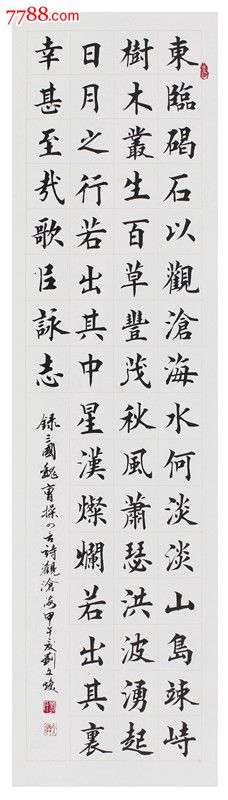 7788.com
東臨碣石以觀滄海水何淡淡山島竦峙
樹木叢生百草豐茂秋風蕭瑟洪波湧起
日月之行若出其中星漢燦爛若出其裏
幸甚至哉歌㠯詠志
録三國魏曹操四言詩觀滄海甲午夏劉文